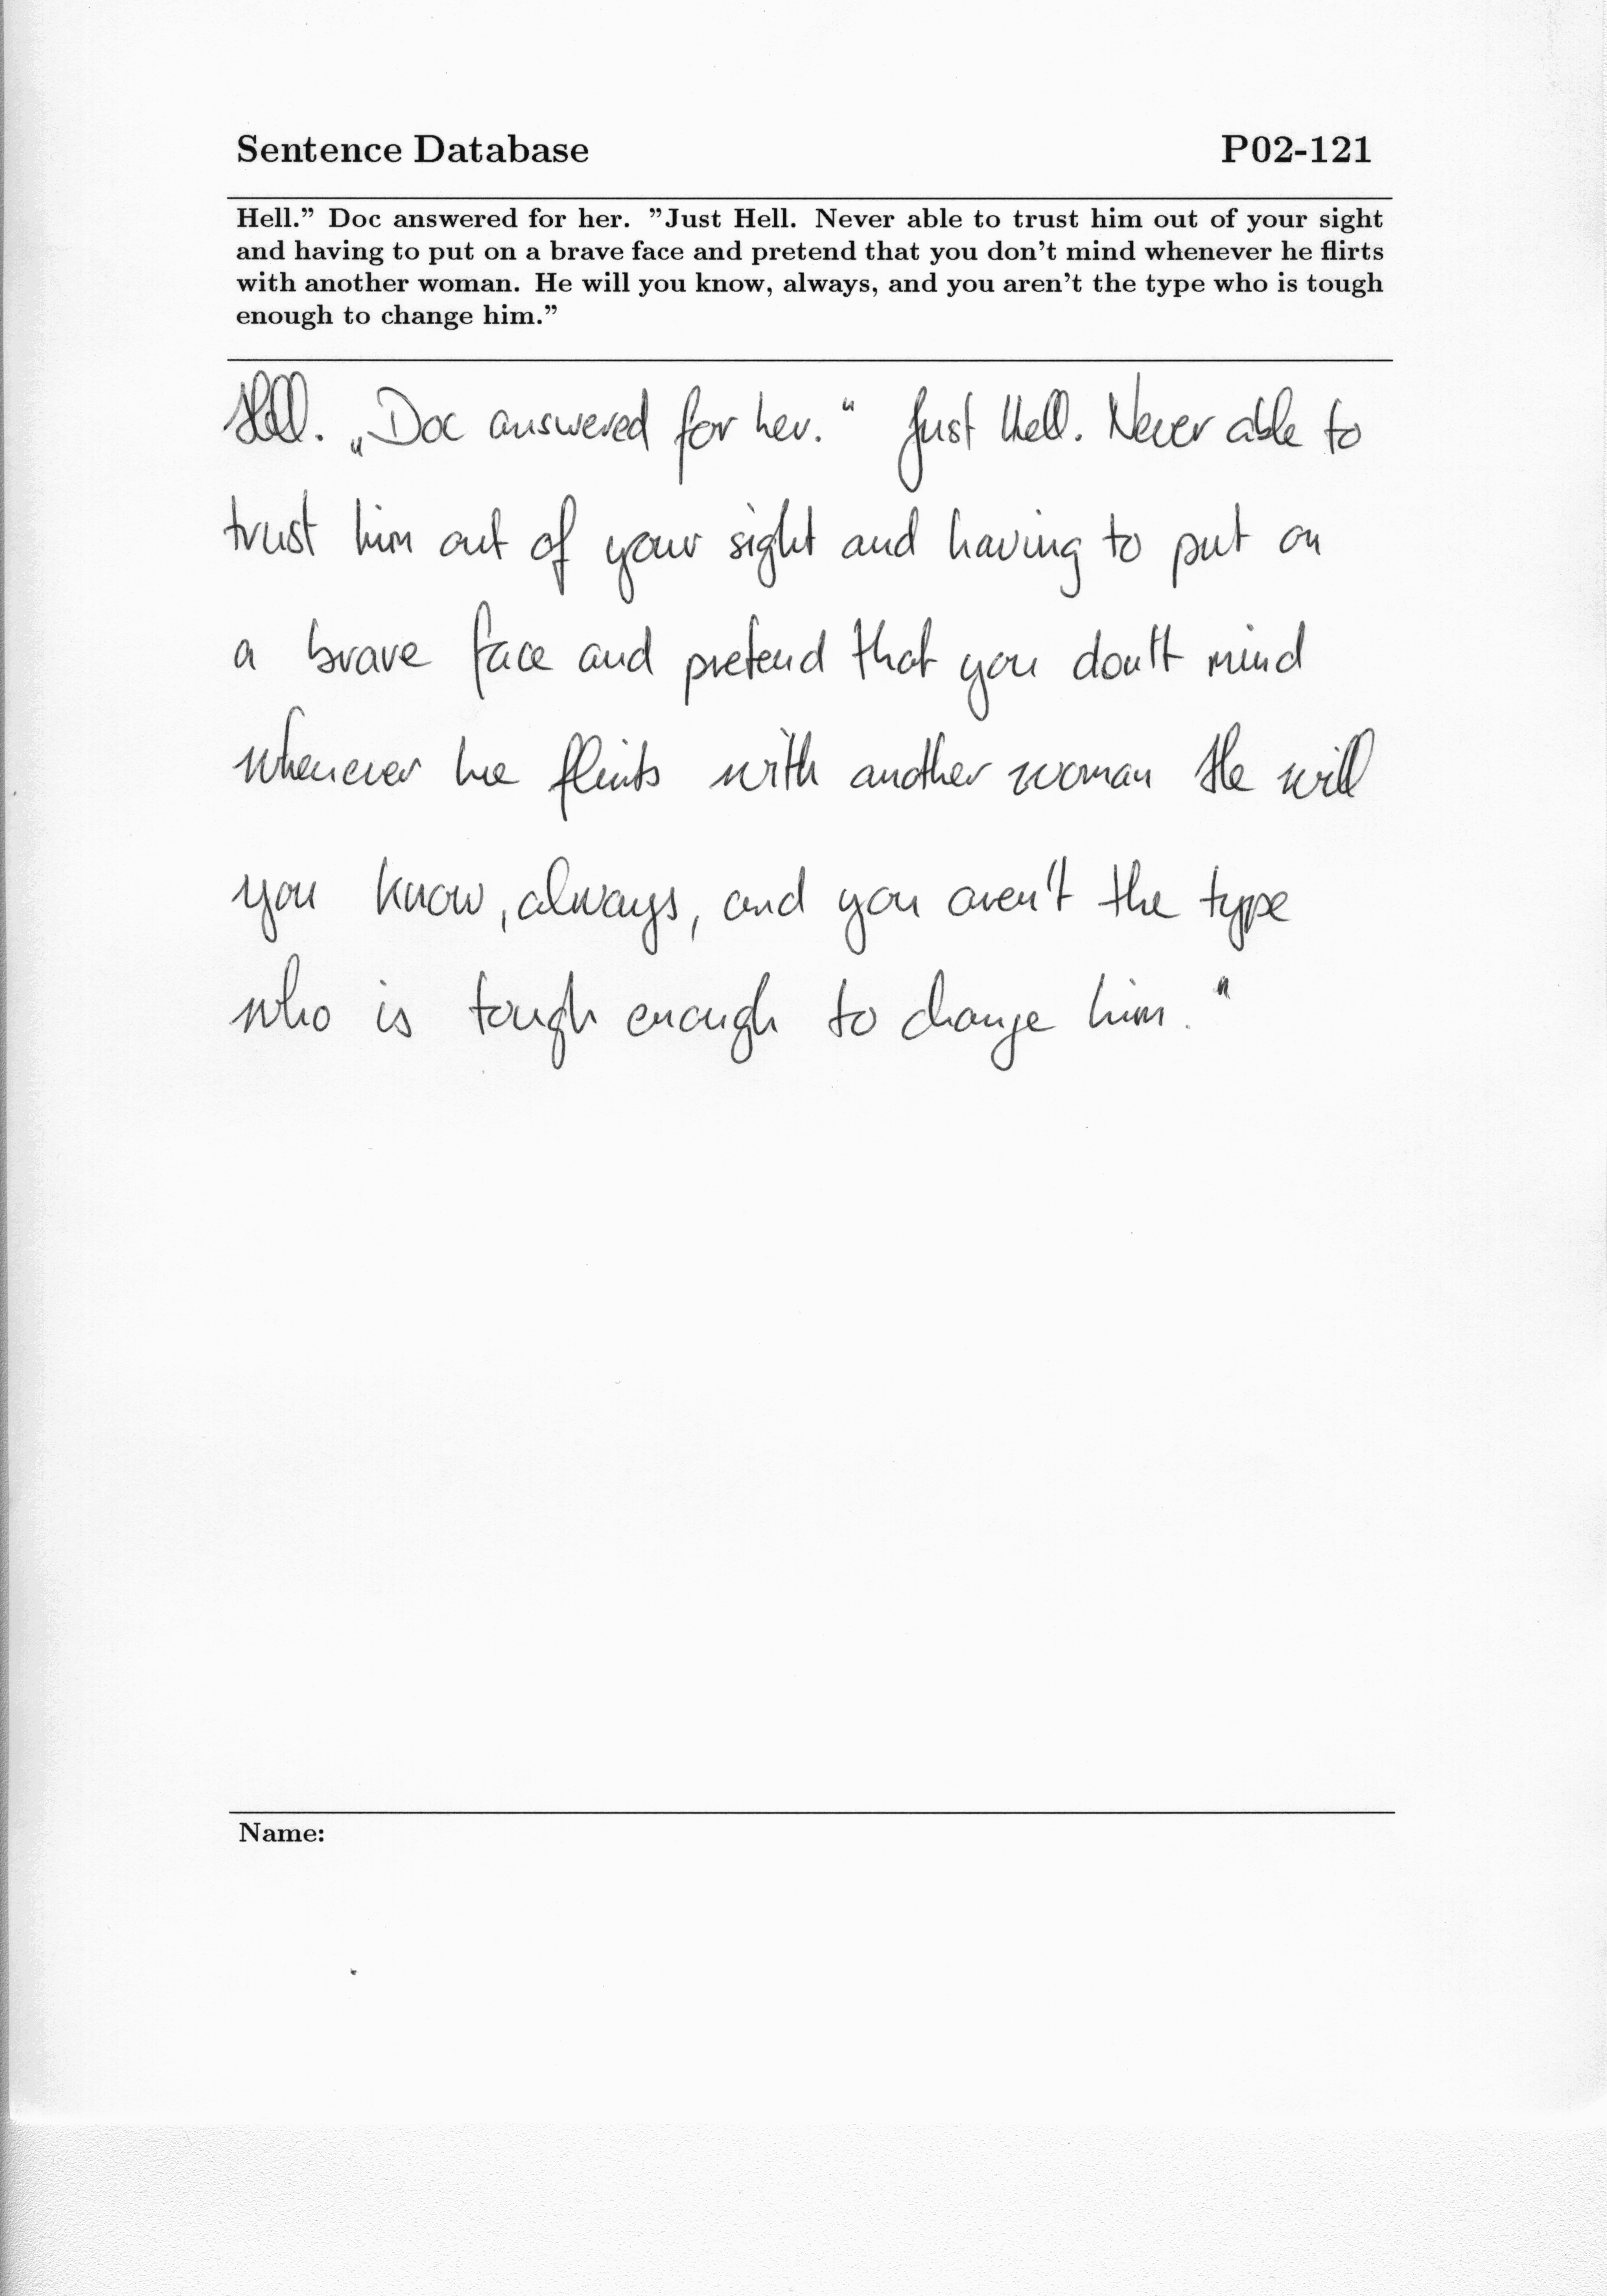 Sentence Database P02-121
Hell.” Doc answered for her. ”Just Hell. Never able to trust him out of your sight
and having to put on a brave face and pretend that you don’t mind whenever he flirts
with another woman. He will you know, always, and you aren’t the type who is tough
enough to change him.”
Hell. „Doc answered for her.“ Just Hell. Never able to
trust him out of your sight and having to put on
a brave face and pretend that you don't mind
whenever he flirts with another woman He will
you know, always, and you aren't the type
who is tough enough to change him."
Name: